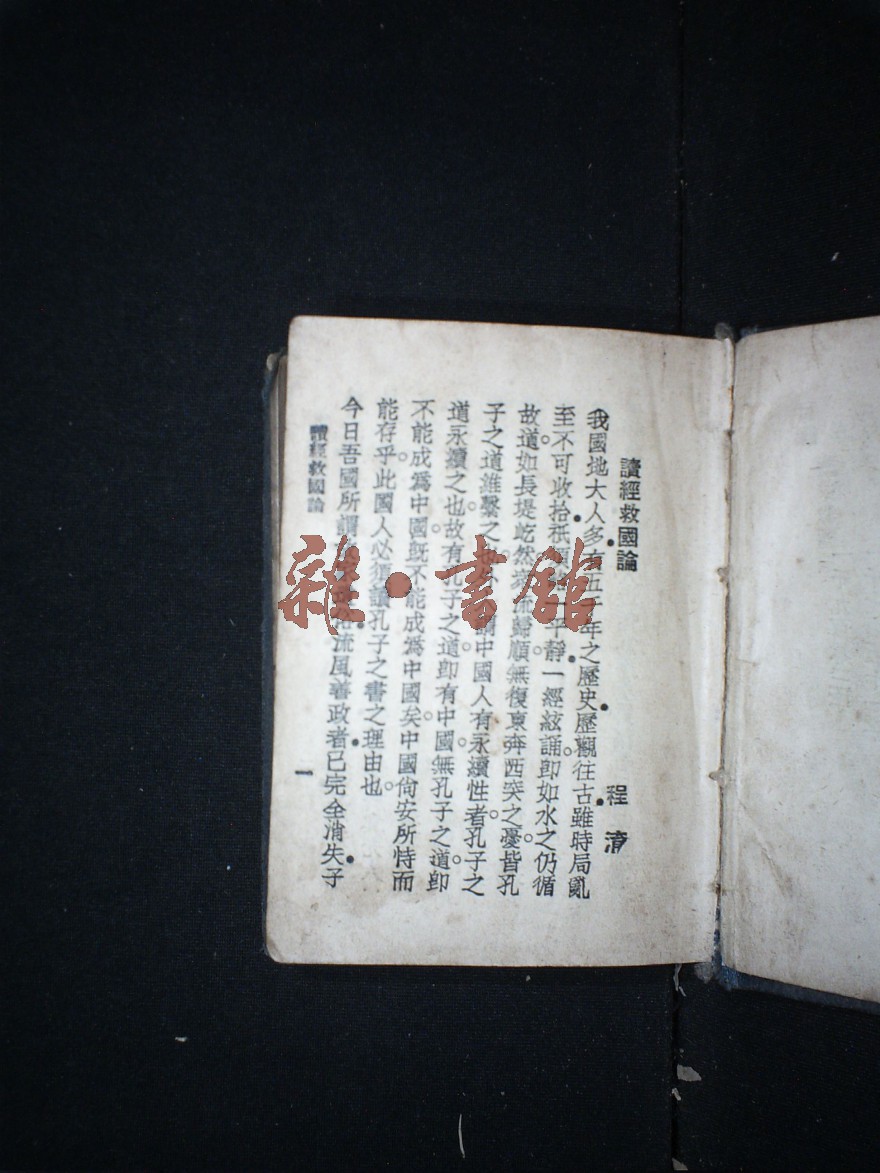 讀經救國論
程淯
我國地大人多有五千年之歷史歷觀往古雖時局亂
至不可收拾祇須 一平靜一經絃誦卽如水之仍循
故道如長堤屹然 流歸順無復東奔西突之憂皆孔
子之道維繫之 謂中國人有永續性者孔子之
道永續之也故有孔子之道卽有中國無孔子之道卽
不能成爲中國旣不能成爲中國矣中國尙安所恃而
能存乎此國人必須讀孔子之書之理由也
今日吾國所謂 流風善政者已完全消失子
讀經救國論
一
雜·書館